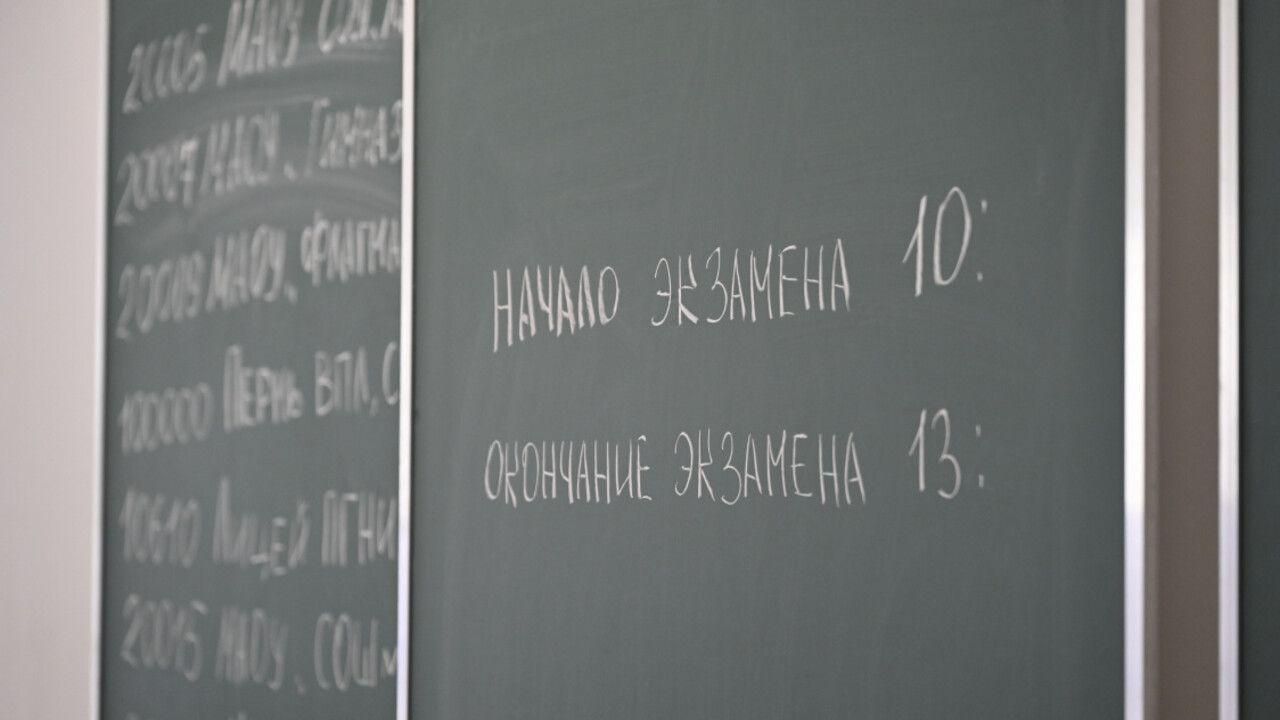 МАОУ СОШ
МАОУ, ГИМНАЗ
МАОУ, ФЛАГМА
100000 ПЕРМЬ ВПЛ, С
10610 Лицей ПГНИ
20015 МАОУ, СОШ
НАЧАЛО ЭКЗАМЕНА 10:
ОКОНЧАНИЕ ЭКЗАМЕНА 13: